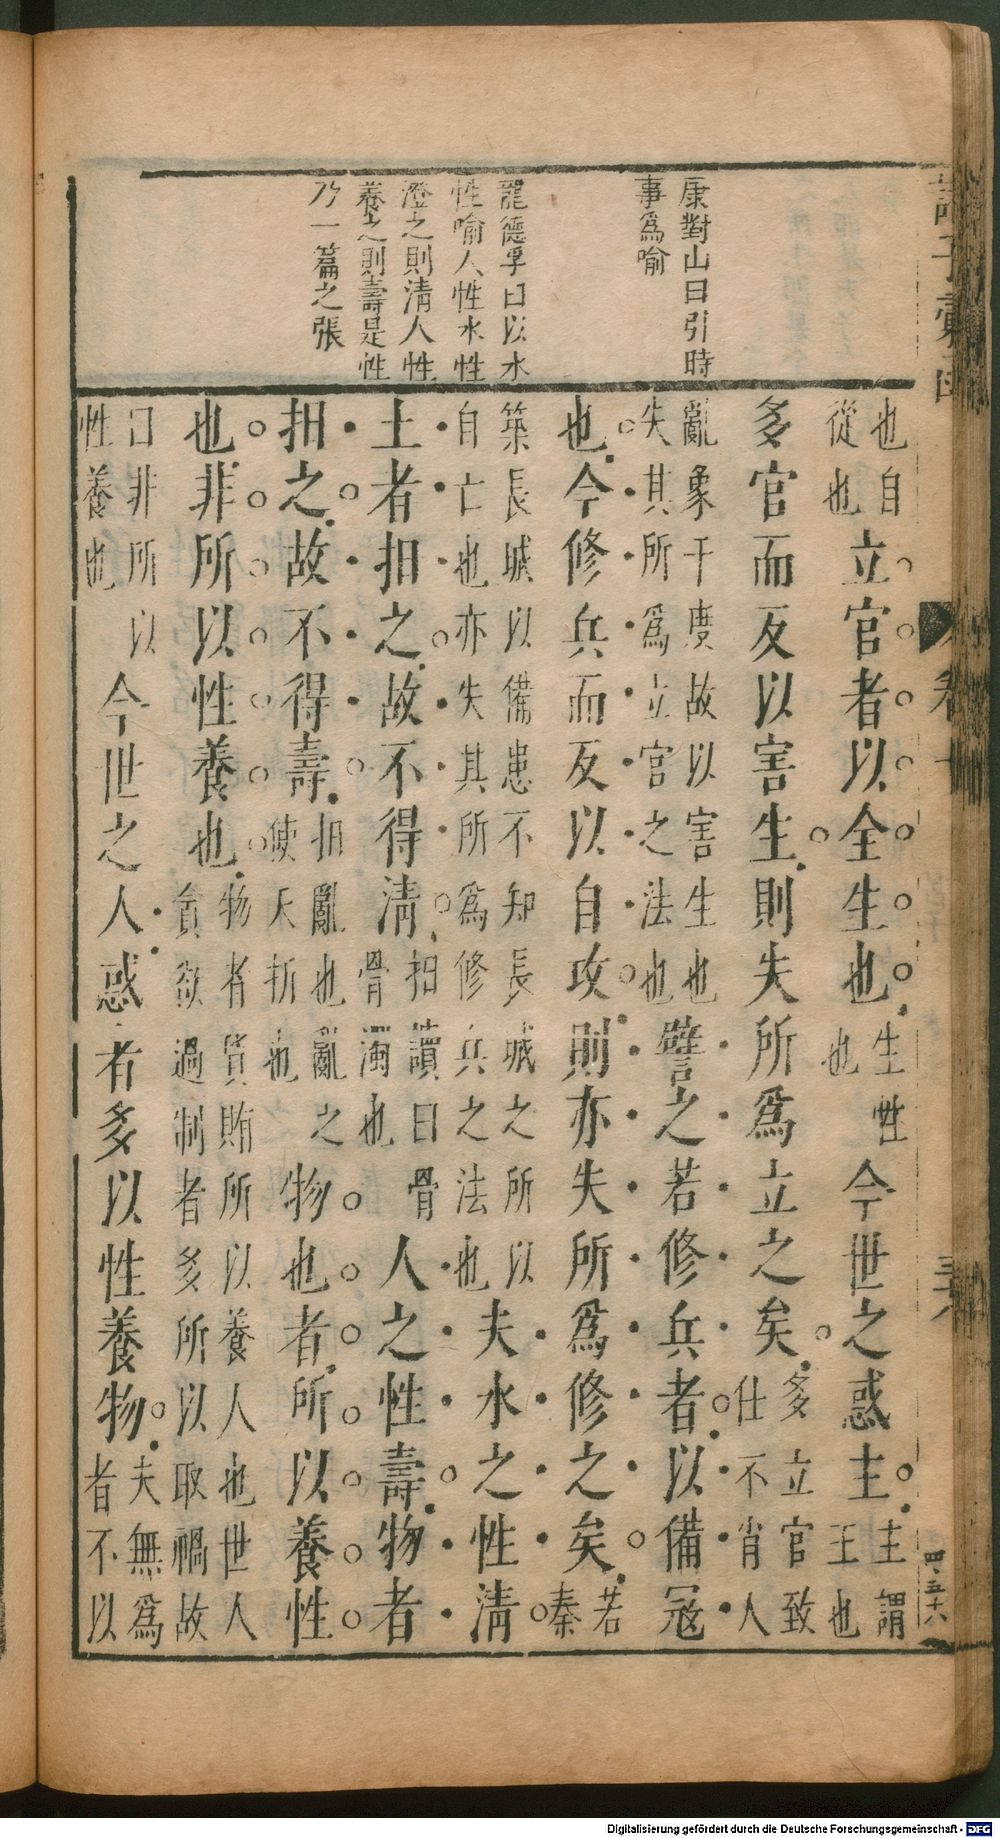 康對山曰引時
事爲喻
龍德孚曰以水
性喻人性水性
澄之則清人性
養之則壽是性
乃一篇之張
也自
從也
立官者以全生也
生性
也
今世之惑主
主謂
王也
多官而反以害生則失所爲立之矣
多立官致
仕不肖人
亂象干度故以害生也
失其所爲立官之法也
譬之若修兵者以備寇
也今修兵而反以自攻則亦失所爲修之矣
若
秦
築長城以備患不知長城之所以
自亡也亦失其所爲修兵之法也
夫水之性清
土者抇之故不得清
抇讀曰骨
骨濁也
人之性壽物者
抇之故不得壽
抇亂也亂之
使夭折也
物也者所以養性
也非所以性養也
物者貨賄所以養人也世人
貪欲過制者多所以取禍故
曰非所以
性養也
今世之人惑者多以性養物
夫無爲
者不以
四五十六
Digitalisierung gefördert durch die Deutsche Forschungsgemeinschaft - DFG